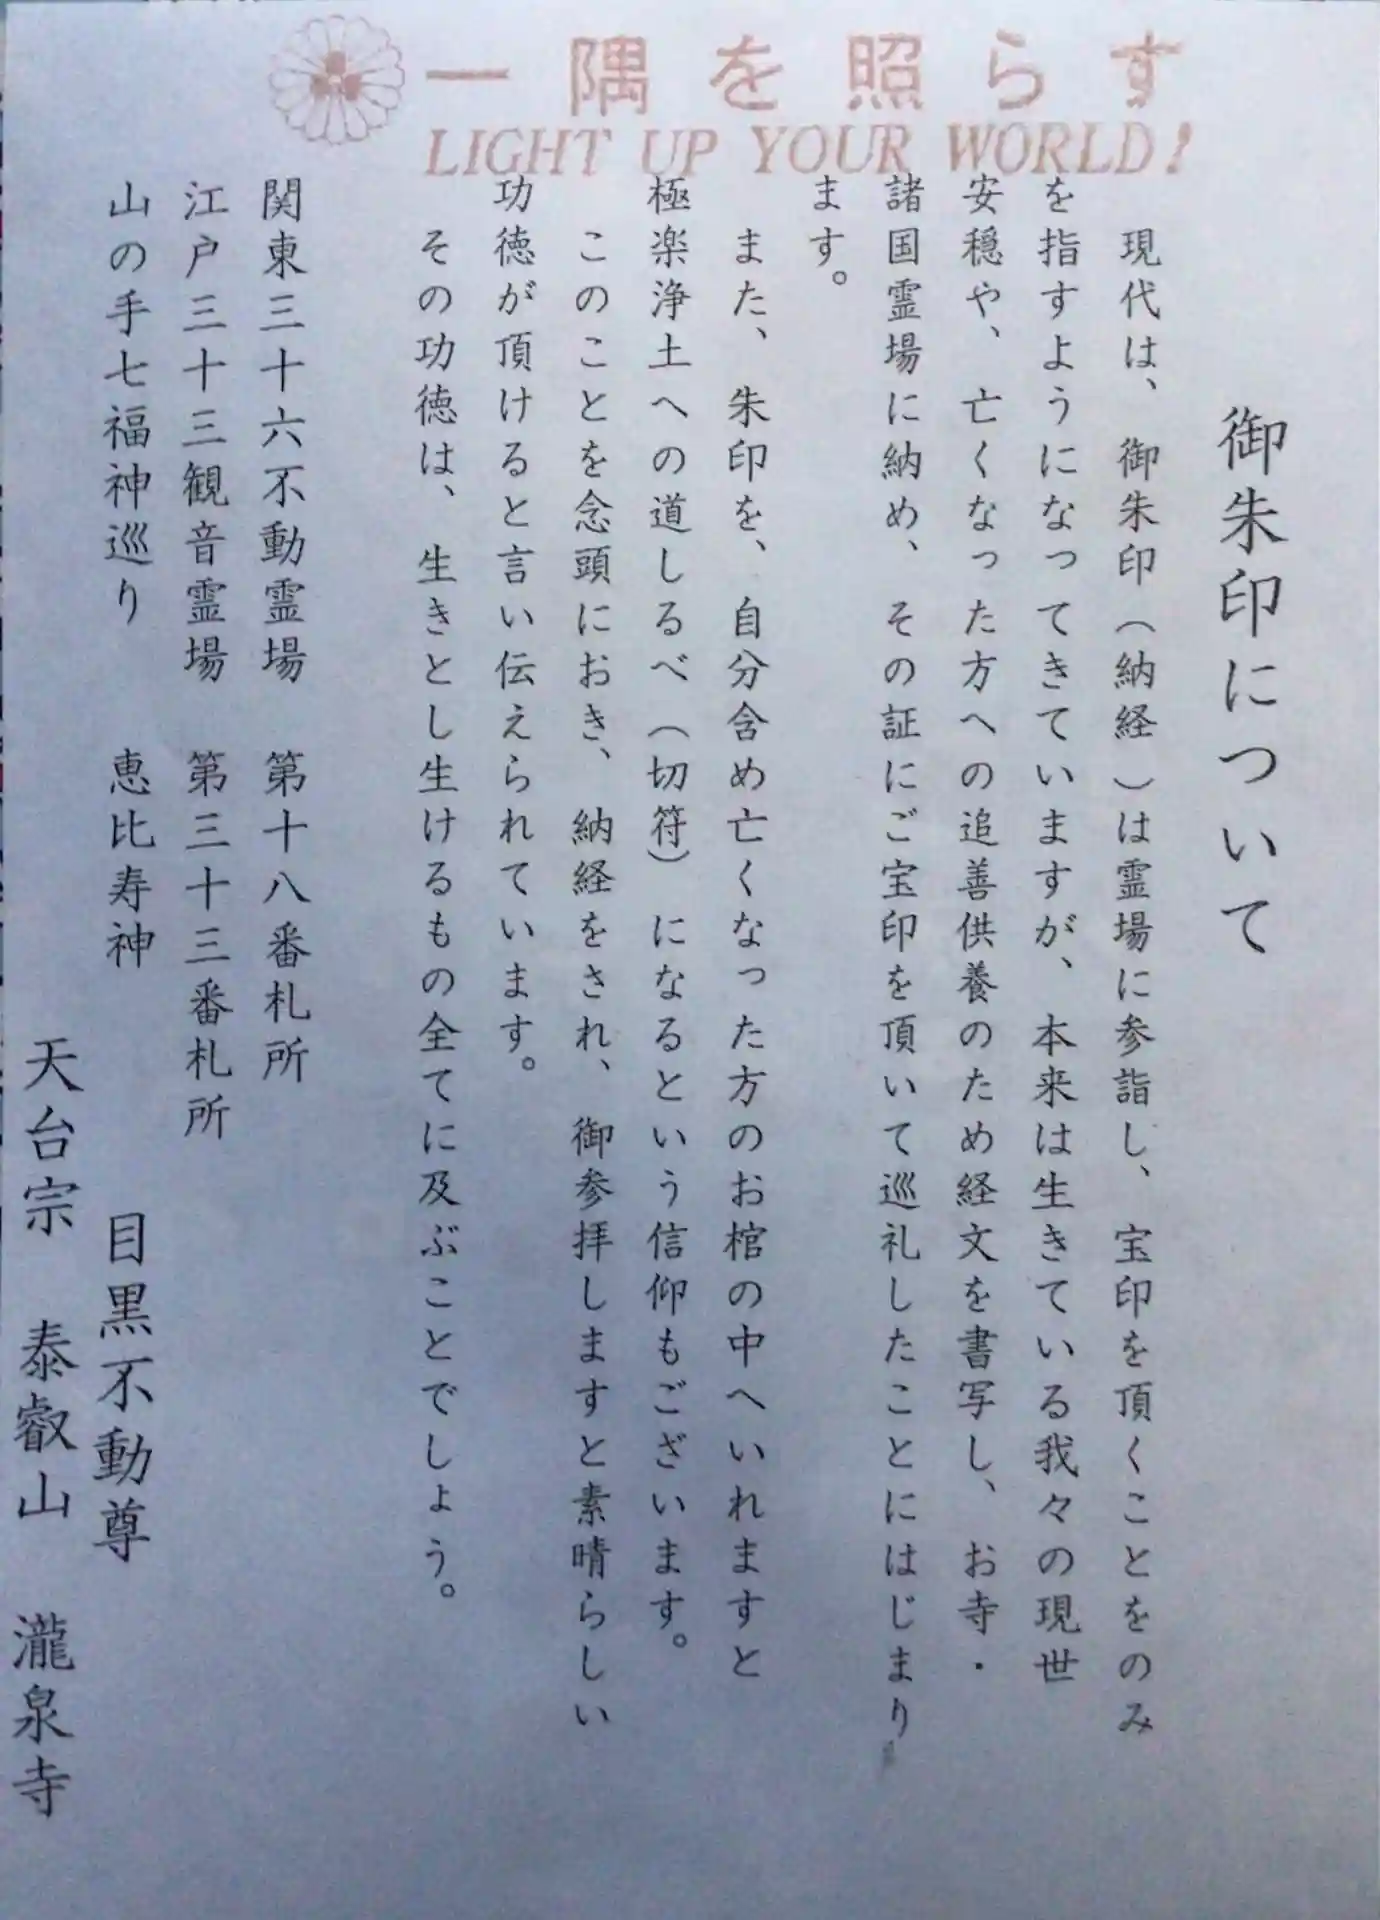 一隅を照らす
LIGHT UP YOUR WORLD!
御朱印について
現代は、御朱印（納経）は霊場に参詣し、宝印を頂くことをのみ
を指すようになってきていますが、本来は生きている我々の現世
安穏や、亡くなった方への追善供養のため経文を書写し、お寺・
諸国霊場に納め、その証にご宝印を頂いて巡礼したことにはじまり
ます。
また、朱印を、自分含め亡くなった方のお棺の中へいれますと
極楽浄土への道しるべ（切符）になるという信仰もございます。
このことを念頭におき、納経をされ、御参拝しますと素晴らしい
功徳が頂けると言い伝えられています。
その功徳は、生きとし生けるもの全てに及ぶことでしょう。
関東三十六不動霊場　第十八番札所
江戸三十三観音霊場　第三十三番札所
山の手七福神巡り　恵比寿神
目黒不動尊
天台宗　泰叡山　瀧泉寺